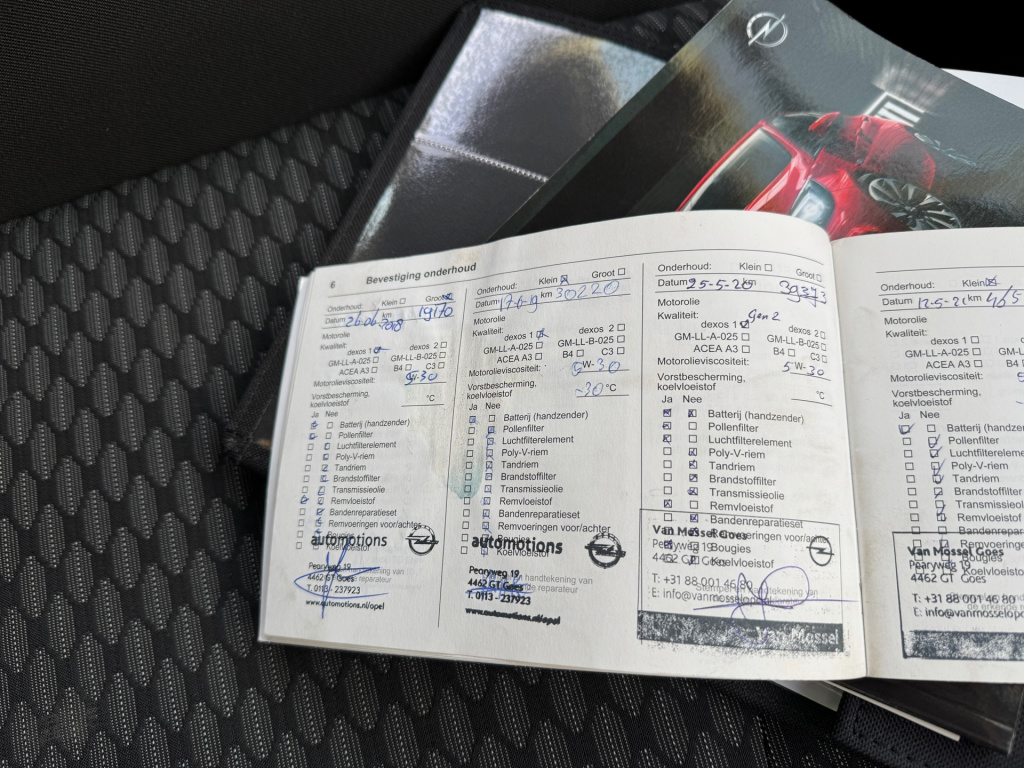 6 Bevestiging onderhoud
Onderhoud: Klein Groot
Datum 26-06-2018 km 19170
Motorolie
Kwaliteit:
dexos 1 dexos 2
GM-LL-A-025 GM-LL-B-025
ACEA A3 B4 C3
Motorolieviscositeit: 5W-30
Vorstbescherming,
koelvloeistof °C
Ja Nee
Batterij (handzender)
Pollenfilter
Luchtfilterelement
Poly-V-riem
Tandriem
Brandstoffilter
Transmissieolie
Remvloeistof
Bandenreparatieset
Remvoeringen voor/achter
Koelvloeistof
automotions
Pearyweg 19
4462 GT Goes
T. 0113 - 237923
www.automotions.nl/opel
Onderhoud: Klein Groot
Datum 17-6-19 km 30220
Motorolie
Kwaliteit:
dexos 1 dexos 2
GM-LL-A-025 GM-LL-B-025
ACEA A3 B4 C3
Motorolieviscositeit: 5W-30
Vorstbescherming,
koelvloeistof -30 °C
Ja Nee
Batterij (handzender)
Pollenfilter
Luchtfilterelement
Poly-V-riem
Tandriem
Brandstoffilter
Transmissieolie
Remvloeistof
Bandenreparatieset
Remvoeringen voor/achter
Bougies
Koelvloeistof
automotions
Pearyweg 19
4462 GT Goes
T. 0113 - 237923
www.automotions.nl/opel
Onderhoud: Klein Groot
Datum 25-5-20 km 39373
Motorolie
Kwaliteit: Gen 2
dexos 1 dexos 2
GM-LL-A-025 GM-LL-B-025
ACEA A3 B4 C3
Motorolieviscositeit: 5W-30
Vorstbescherming,
koelvloeistof °C
Ja Nee
Batterij (handzender)
Pollenfilter
Luchtfilterelement
Poly-V-riem
Tandriem
Brandstoffilter
Transmissieolie
Remvloeistof
Bandenreparatieset
Remvoeringen voor/achter
Bougies
Koelvloeistof
Van Mossel Goes
Pearyweg 19
4462 GT Goes
T: +31 88 001 46 80
E: info@vanmosselop
Van Mossel
Onderhoud: Klein
Datum 12-5-21 km
Motorolie
Kwaliteit:
dexos 1
GM-LL-A-025
ACEA A3
Motorolieviscositeit:
Vorstbescherming,
koelvloeistof
Ja Nee
Batterij (handzender
Pollenfilter
Luchtfilterelement
Poly-V-riem
Tandriem
Brandstoffilter
Transmissieolie
Remvloeistof
Bandenreparat
Remvoeringe
Van Mossel Goes
Pearyweg 19
4462 GT Goes
T: +31 88 001 46 80
E: info@vanmosselope